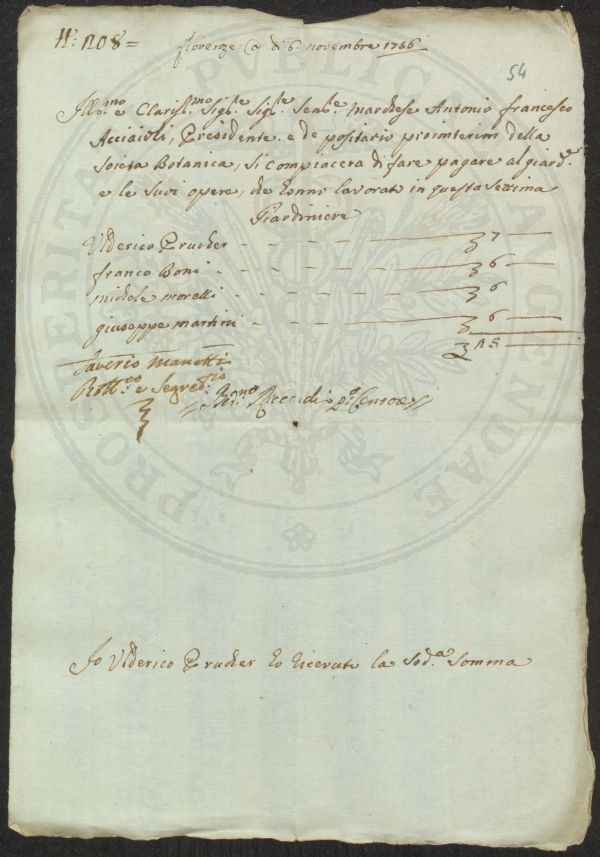 N.° 208 =
florenze Ca di 6. novembre 1756
54
Ill.mo e Claris.mo Sig.re Sig.re Sen.re Marchese Antonio francesco
Acciaioli, Presidente e de positario prointerim della
Soieta Botanica, si Compiacera di fare pagare al giard.e
e le suoi opere, che hanno lavorato in questa settima
Giardiniere
Ulderico Prucher 7
franco Boni 6
michele morelli 6
giuseppe martini 6
25
Saverio Manetti
e Segret.rio
Io Ulderico Prucher ho ricevuto la sod.a Somma
PUBLICAE
PROSPERITATI
AUGENDAE